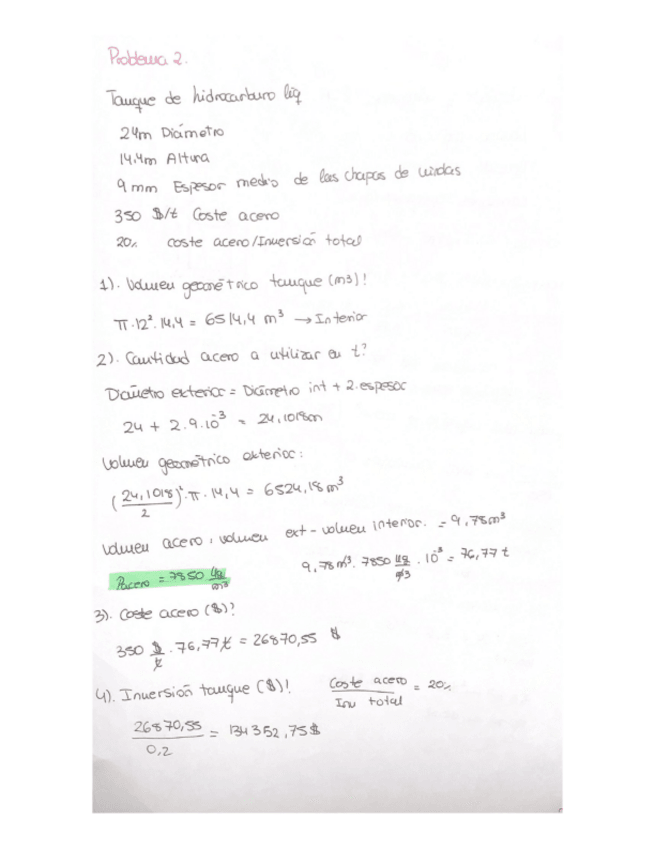 Problema 2.
Tanque de hidrocarburo liq
24m Diámetro
14.4m Altura
9 mm Espesor medio de las chapas de virolas
350 $/t Coste acero
20% coste acero/Inversión total
1). Volumen geométrico tanque (m3)!
π·12²·14,4 = 6514,4 m³ → Interior
2). Cantidad acero a utilizar en t?
Diámetro exterior = Diámetro int + 2·espesor
24 + 2·9·10⁻³ = 24,1018m
Volumen geométrico exterior:
(24,1018/2)²·π·14,4 = 6524,18 m³
Volumen acero: volumen ext - volumen interior. = 9,78m³
ρacero = 7850 kg/m³
9,78 m³· 7850 kg/m³ · 10⁻³ = 76,77 t
3). Coste acero ($)?
350 $/t · 76,77 t = 26870,55 $
4). Inversión tanque ($)! Coste acero/Inv total = 20%
26870,55/0,2 = 134352,75$